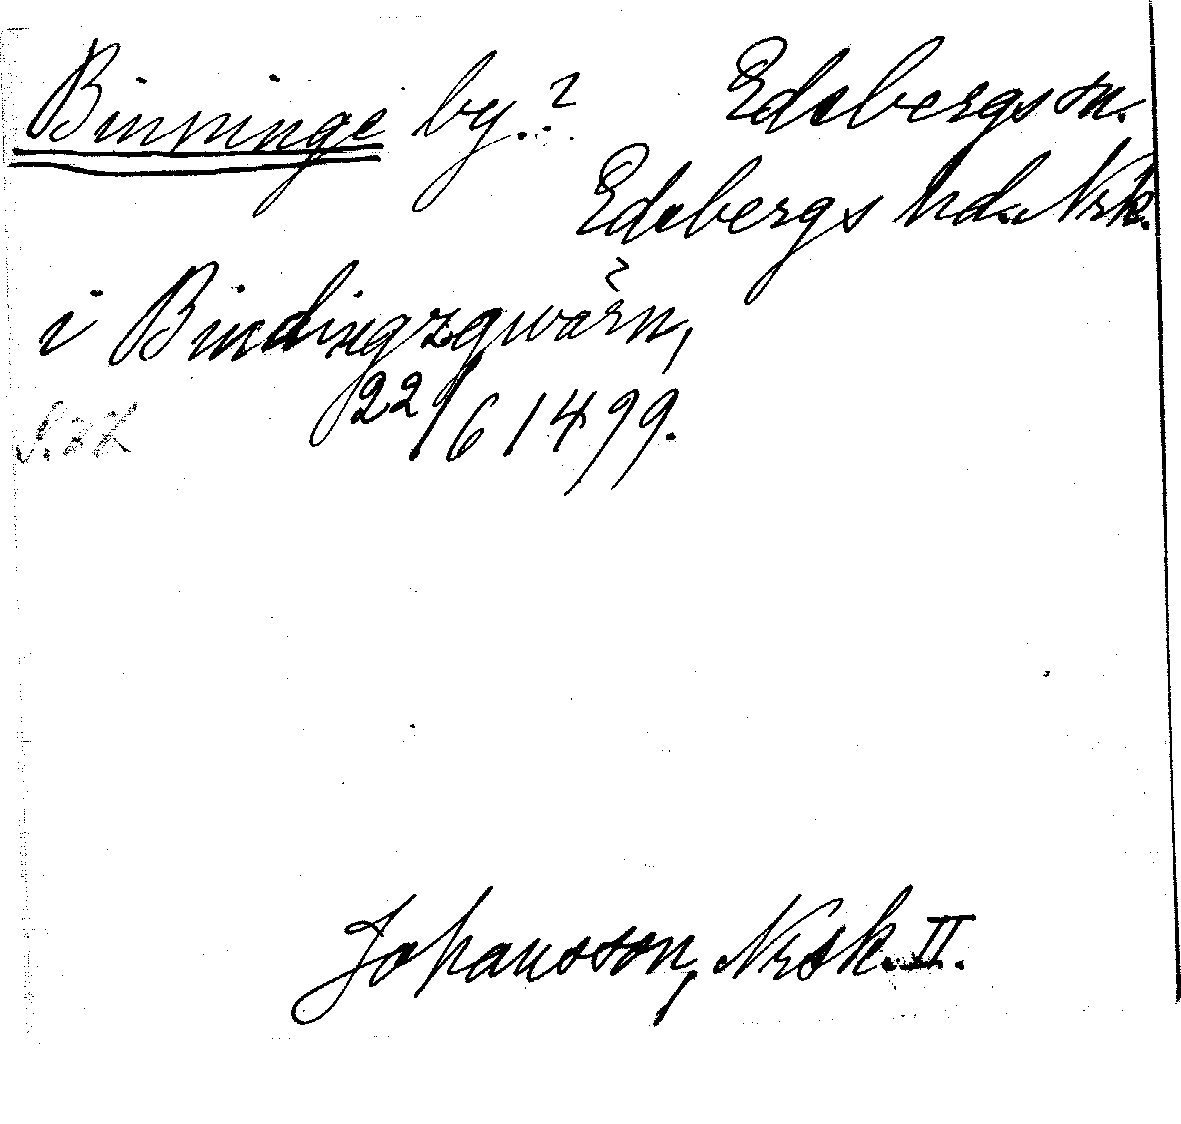 Binninge by.? Edsbergs sn.
Edsbergs hd. Nrk.
i Bindingzqwärn,
22/6 1499.
S. 32
Johansson, Nrsk. II.